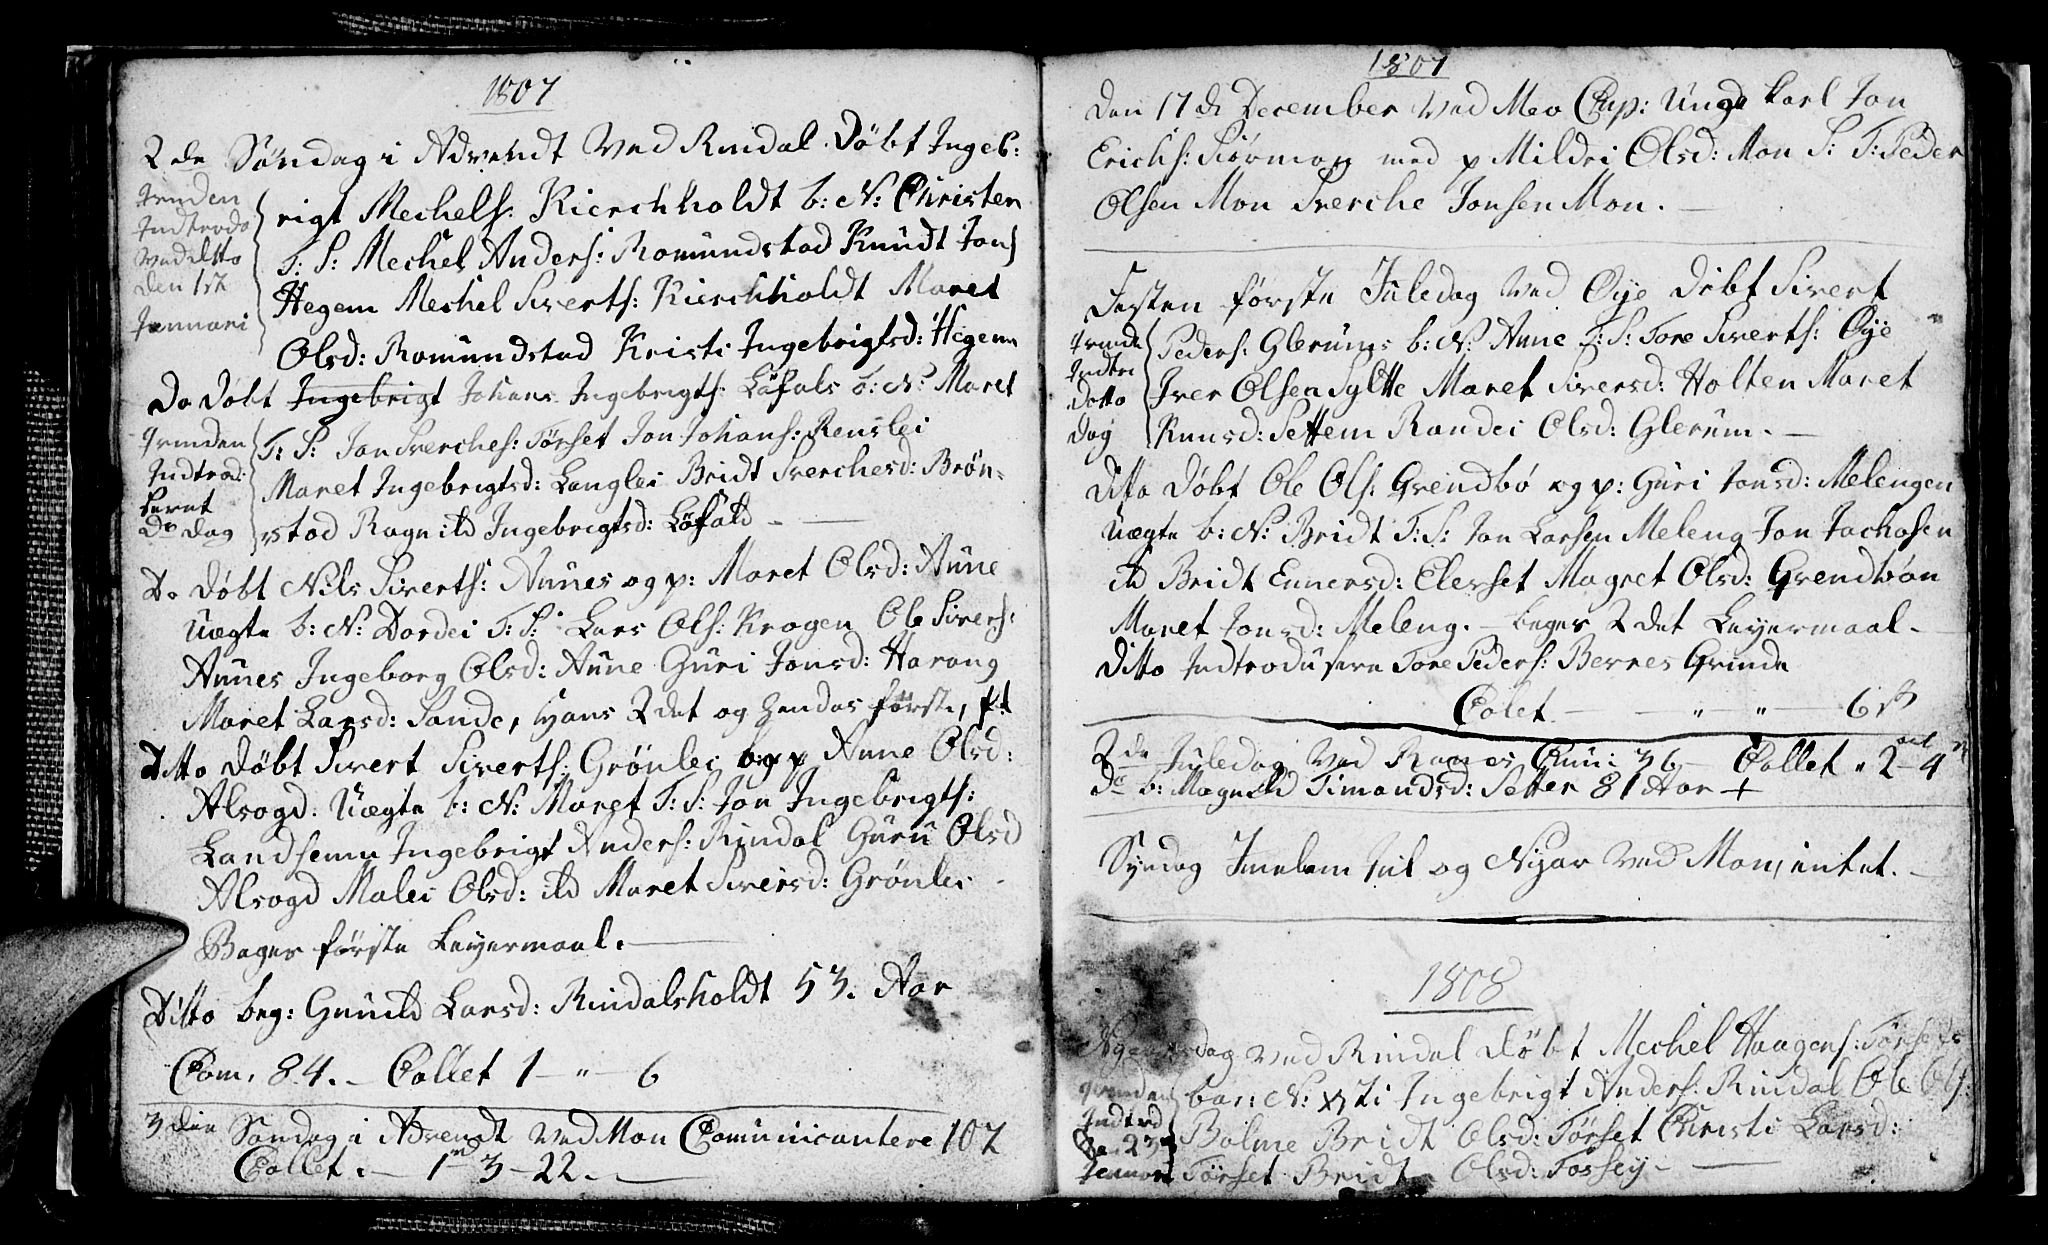 1807
2de Søndag i Advendt Ved Rindal Døbt Ingeb:
rigt Mechels: Kierchholdt b: N: Christen
T: S: Mechel Anders: Romundstad Knudt Jons
Hegem Mechel Siverts: Kierchholdt Maret
Olsd: Romundstad Kristi Ingebrigtsd: Hegem
qvinden
Indtrodu
Ved ditto
den 1st
Januari
Do Døbt Ingebrigt Johans Ingebrigts: Løfals b: N: Maret
T: S: Jon Sverches: Tørset Jon Johans: Renslei
Maret Ingebrigtsd: Langlei Bridt Sverchesd: Brøn-
stad Ragnild Ingebrigtsd: Løfald
qvinden
Indtrod:
seret
Do dag
Do Døbt Nils Siverts: Aunes og p: Maret Olsd: Aune
Uægte b: N: Dordei T: S: Lars Ols: Krogen Ole Sivers:
Aunes Ingeborg Olsd: Aune Guri Jonsd: Harang
Maret Larsd: Sande, Hans 2det og hendes første,
Ditto Døbt Sivert Siverts: Grønlei og p Anne Olsd:
Alsogd: Uægte b: N: Maret T: S: Jon Ingebrigts:
Landsemu Ingebrigt Anders: Rindal Guru Olsd
Alsogd Malei Olsd: ild Maret Siversd: Grønlei
Beges første Leyermaal.
Ditto beg: Gunild Larsd: Rindalsholdt 53. Aar
Com. 84. - Collet 1 - " - 6
3die Søndag i Advendt Ved Mon Comunicantere 107
Collet. - 1 - 3 - 22.
1807
Den 17de December Ved Moe Cap: Unge karl Jon
Erichs: Siørmog med p Mildri Olsd: Mon S: T: Peder
Olsen Mon Sverche Jonsen Mon.
Festen første Juledag Ved Øye Døbt Sivert
Peders: Glerums b: N: Anne T: S: Tore Siverts: Øye
Iver Olsen Syltte Maret Siversd: Holten Maret
Knusd: Settem Randei Olsd: Glerum.
qvinde
Indtr
Dotto
Dag
Ditto Døbt Ole Ols: Grendbø og p: Guri Jonsd: Melengen
Uægte b: N: Bridt T: S: Jon Larsen Meleng Jon Jachosen
ild Bridt Ennersd: Elerset Magret Olsd: Grendbøn
Maret Jonsd: Meleng. - beges 2det Leyermaal.
Ditto Indtroduseru Tore Peders: Bernes Grinde
Colet - " - " - 6 ß
2de Juledag Ved Ranes Cum: 36 - Collet " 2 - 4
Do b: Magnild Simondsd: Setter 81 Aar +
Syndag Imelem Jul og Nyaar Ved Mon, intet.
1808
Nyeaarsdag ved Rindal Døbt Mechel Haagens: Tørsets
bar: N: Xsti Ingebrigt Anders: Rindal Ole Ols:
Bolme Bridt Olsd: Tørset Christi Larsd:
Tørset Bridt Olsd: Fossey
qvinden
Indtrd
Do 23
Jenuari